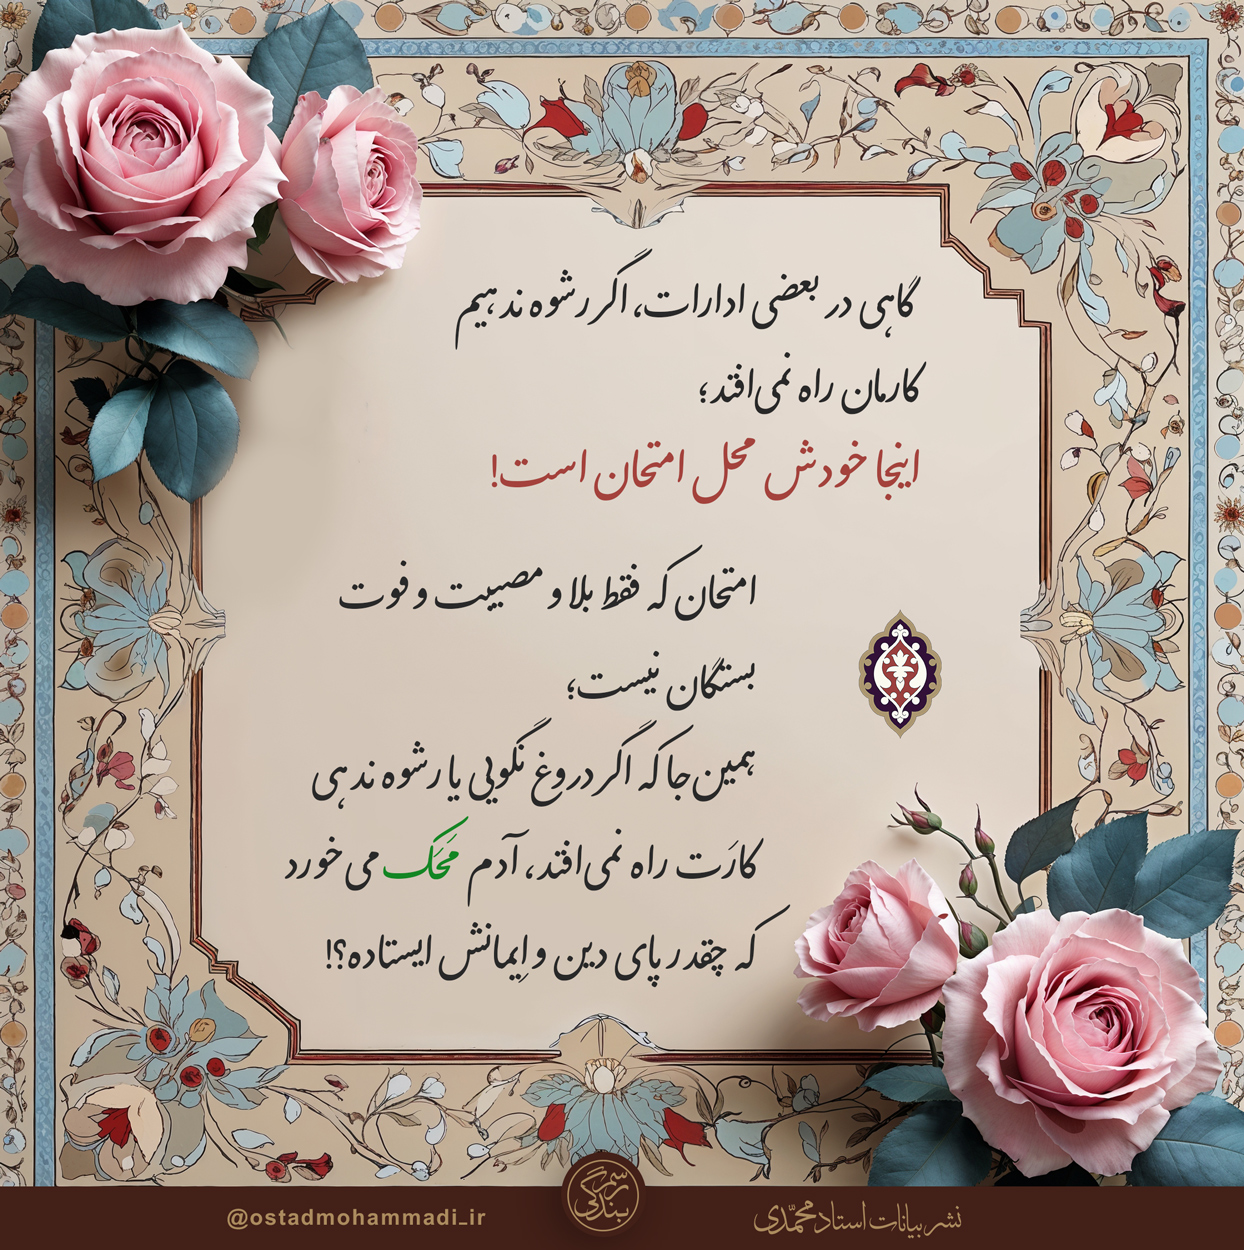 گاهی در بعضی ادارات، اگر رشوه ندهیم
کارمان راه نمی‌افتد؛
اینجا خودش محل امتحان است!
امتحان که فقط بلا و مصیبت و فوت
بستگان نیست؛
همین‌جا که اگر دروغ نگویی یا رشوه ندهی
کارَت راه نمی‌افتد، آدم مَحَک می‌خورد
که چقدر پای دین و اِیمانش ایستاده؟!
رسم بندگی
نشر بیانات استاد محمّدی
@ostadmohammadi_ir